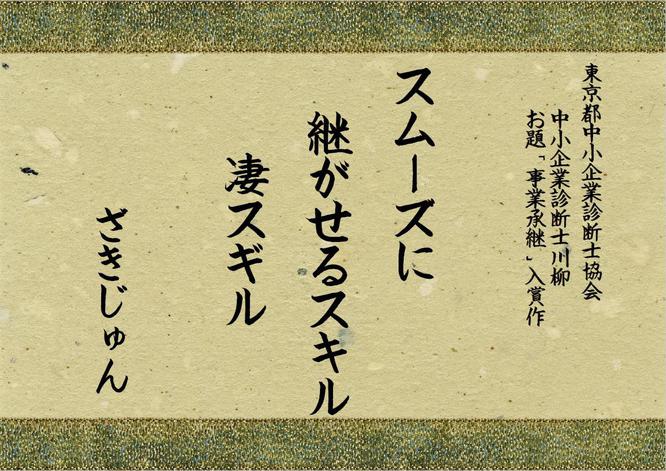 東京都中小企業診断士協会
中小企業診断士川柳
お題「事業承継」入賞作
スムーズに
継がせるスキル
凄スギル
ざきじゅん